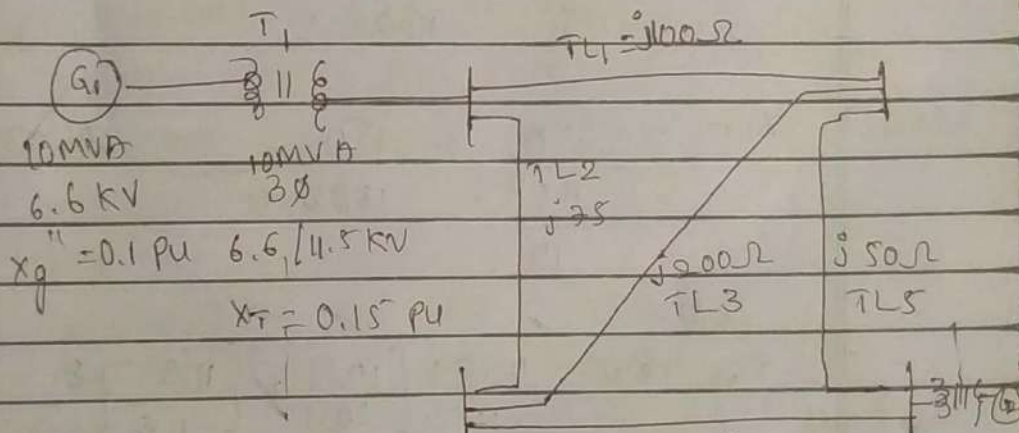 T1
TL1 = j100Ω
G1
10MVA
6.6 KV
Xg" = 0.1 PU
10MVA
3Ø
6.6/11.5 KV
XT = 0.15 PU
TL2
j75
j200Ω
TL3
j50Ω
TL5